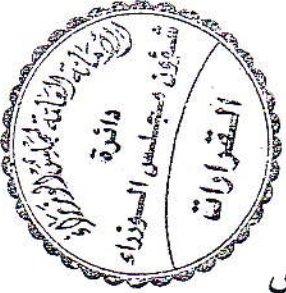 الأمانة العامة لمجلس الوزراء
دائرة
شؤون مجلس الوزراء
القرارات